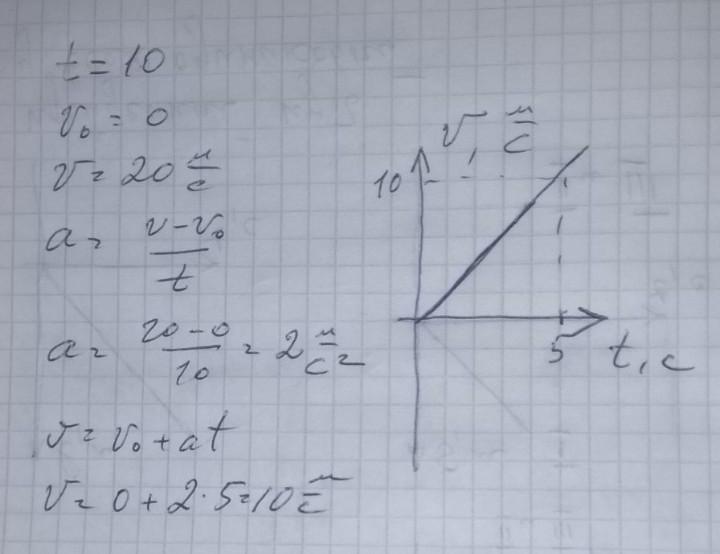 t = 10
v₀ = 0
v = 20 м/с
a = (v - v₀)/t
a = (20 - 0)/10 = 2 м/с²
v = v₀ + at
v = 0 + 2·5 = 10 м/с
v, м/с
10
5
t, с